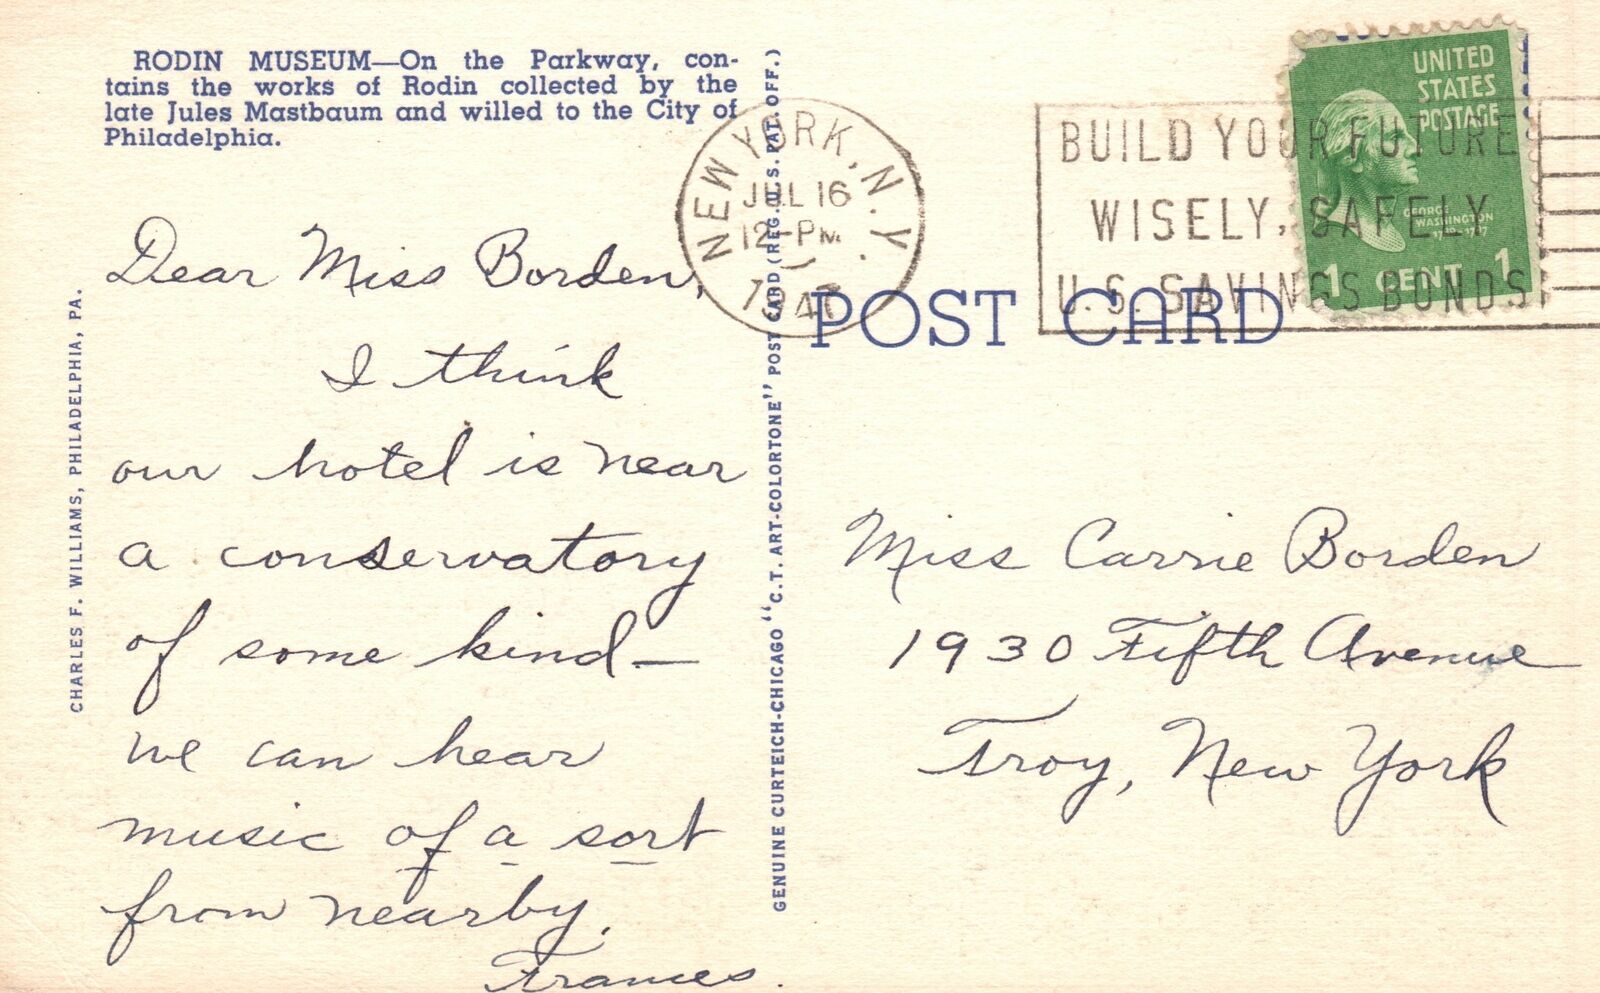 RODIN MUSEUM—On the Parkway, con-
tains the works of Rodin collected by the
late Jules Mastbaum and willed to the City of
Philadelphia.
CHARLES F. WILLIAMS, PHILADELPHIA, PA.
Dear Miss Borden,
I think
our hotel is near
a conservatory
of some kind—
we can hear
music of a sort
from nearby.
Frances.
GENUINE CURTEICH-CHICAGO "C.T. ART-COLORTONE" POST CARD (REG. U.S. PAT. OFF.)
NEW YORK, N.Y.
JUL 16
12-PM
1947
BUILD YOUR FUTURE
WISELY, SAFELY
U.S. SAVINGS BONDS
UNITED
STATES
POSTAGE
GEORGE
WASHINGTON
1 CENT 1
POST CARD
Miss Carrie Borden
1930 Fifth Avenue
Troy, New York